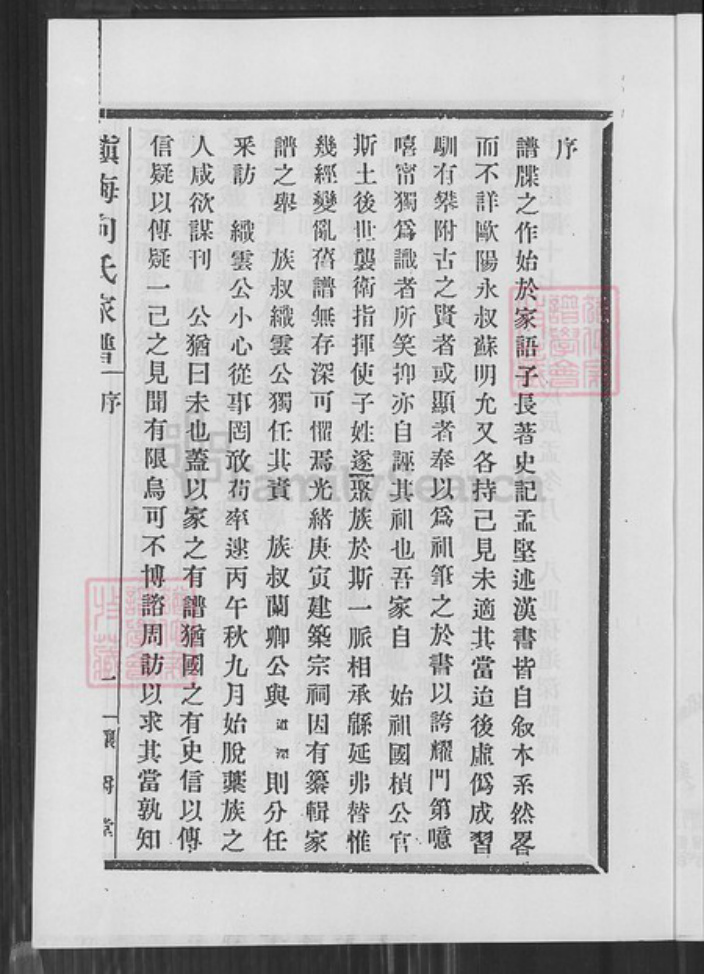 序
譜牒之作始於家語子長著史記孟堅述漢書皆自叙本系然畧
而不詳歐陽永叔蘇明允又各持己見未適其當迨後虛僞成習
馴有攀附古之賢者或顯者奉以爲祖筆之於書以誇耀門第噫
嘻甯獨爲識者所笑抑亦自誣其祖也吾家自 始祖國楨公官
斯土後世襲衛指揮使子姓遂聚族於斯一脈相承緜延弗替惟
幾經變亂舊譜無存深可懼焉光緒庚寅建築宗祠因有纂輯家
譜之舉 族叔織雲公獨任其責 族叔蘭卿公與道深則分任
采訪 織雲公小心從事罔敢苟率逮丙午秋九月始脫藁族之
人咸欲謀刊 公猶曰未也蓋以家之有譜猶國之有史信以傳
信疑以傳疑一己之見聞有限烏可不博諮周訪以求其當孰知
鎮海向氏家譜 序 一
FamilySearch